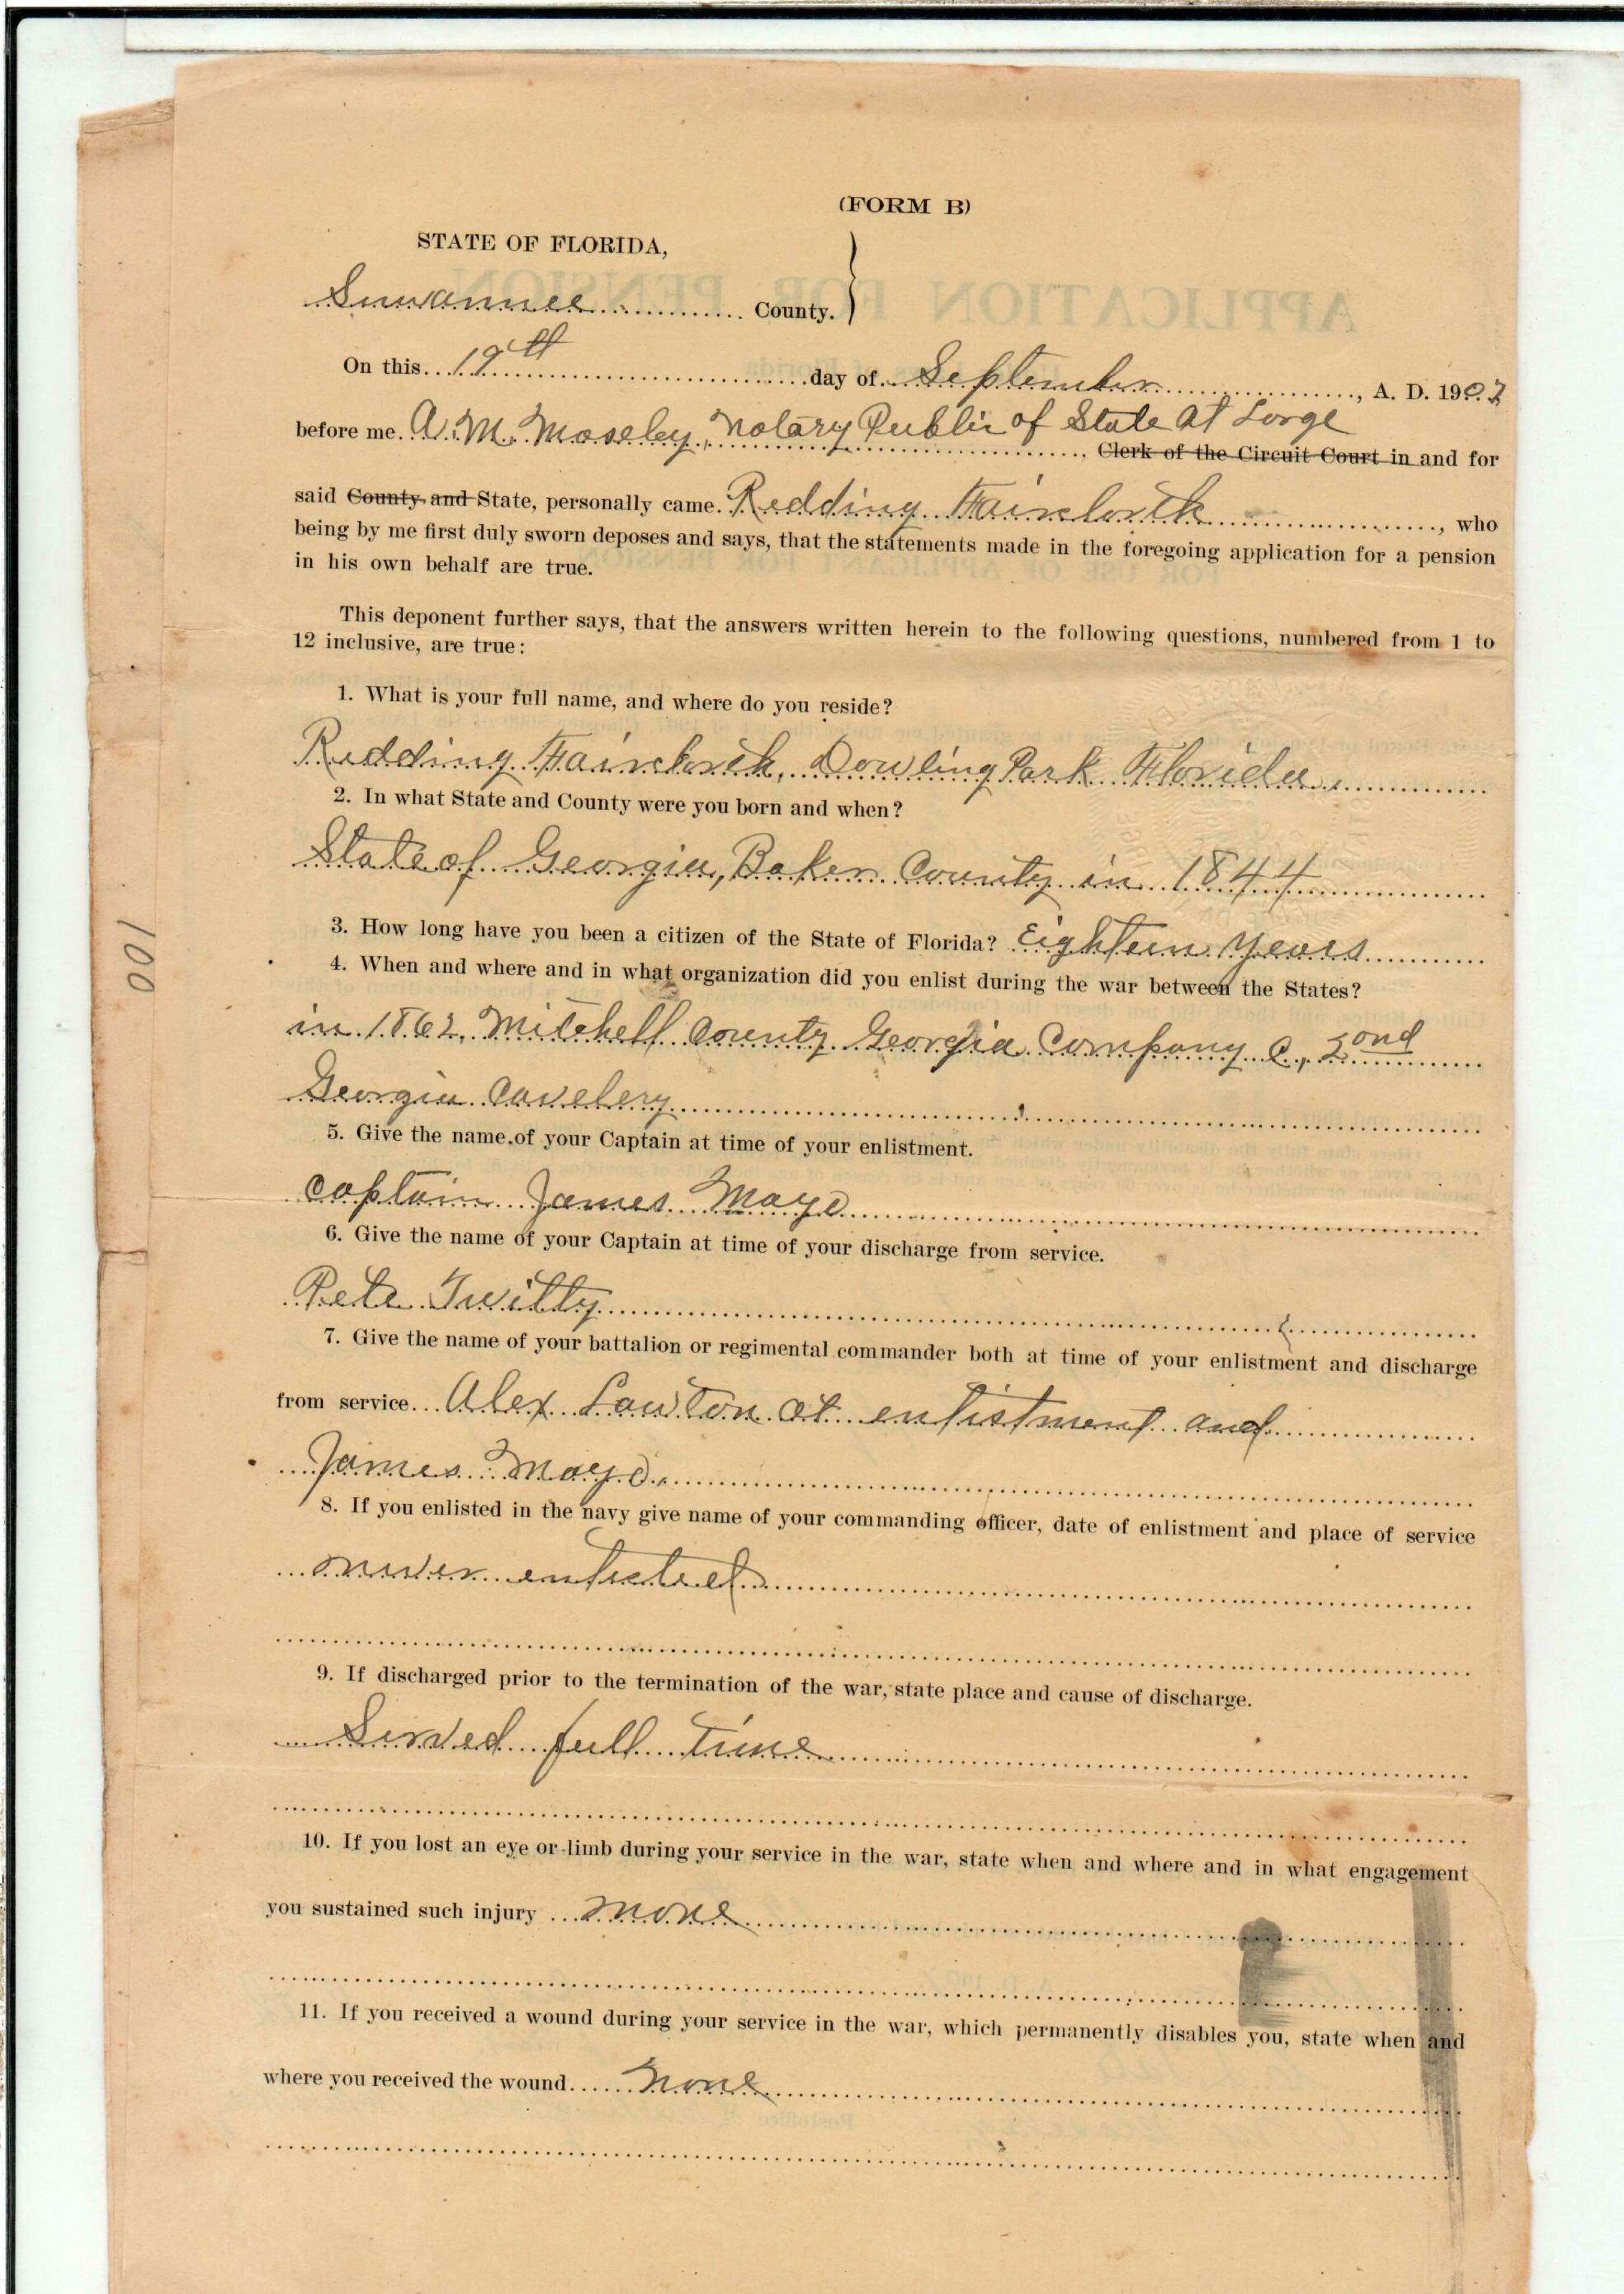 (FORM B)
STATE OF FLORIDA,
Suwannee County.
On this 19th day of September, A. D. 1907
before me A. M. Moseley, Notary Public of State at Large
Clerk of the Circuit Court in and for
said County and State, personally came Redding Faircloth, who
being by me first duly sworn deposes and says, that the statements made in the foregoing application for a pension
in his own behalf are true.
This deponent further says, that the answers written herein to the following questions, numbered from 1 to
12 inclusive, are true:
1. What is your full name, and where do you reside?
Redding Faircloth, Dowling Park Florida
2. In what State and County were you born and when?
State of Georgia, Baker County in 1844
3. How long have you been a citizen of the State of Florida? Eighteen years
4. When and where and in what organization did you enlist during the war between the States?
in 1862, Mitchell County Georgia Company C, 2ond
Georgia Cavelery
5. Give the name of your Captain at time of your enlistment.
Captain James Mayo
6. Give the name of your Captain at time of your discharge from service.
Pete Twitty
7. Give the name of your battalion or regimental commander both at time of your enlistment and discharge
from service. Alex Lawton at enlistment and
James Mayo.
8. If you enlisted in the navy give name of your commanding officer, date of enlistment and place of service
never enlisted
9. If discharged prior to the termination of the war, state place and cause of discharge.
Served full time
10. If you lost an eye or limb during your service in the war, state when and where and in what engagement
you sustained such injury none
11. If you received a wound during your service in the war, which permanently disables you, state when and
where you received the wound. none
100